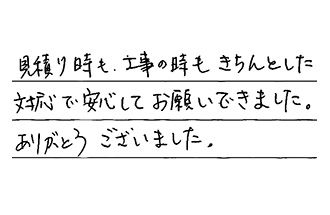 見積り時も、工事の時も きちんとした
対応で安心して お願いできました。
ありがとう ございました。